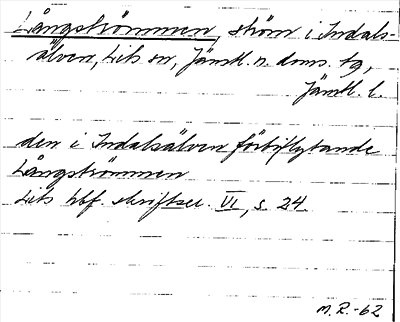 Långströmmen, ström i Indals-
älven, Lits sn, Jämtl. n. doms. tg,
Jämtl. l.
den i Indalsälven förbiflytande
Långströmmen
Lits hbf. skriftser. VI, s. 24
M.R.-62